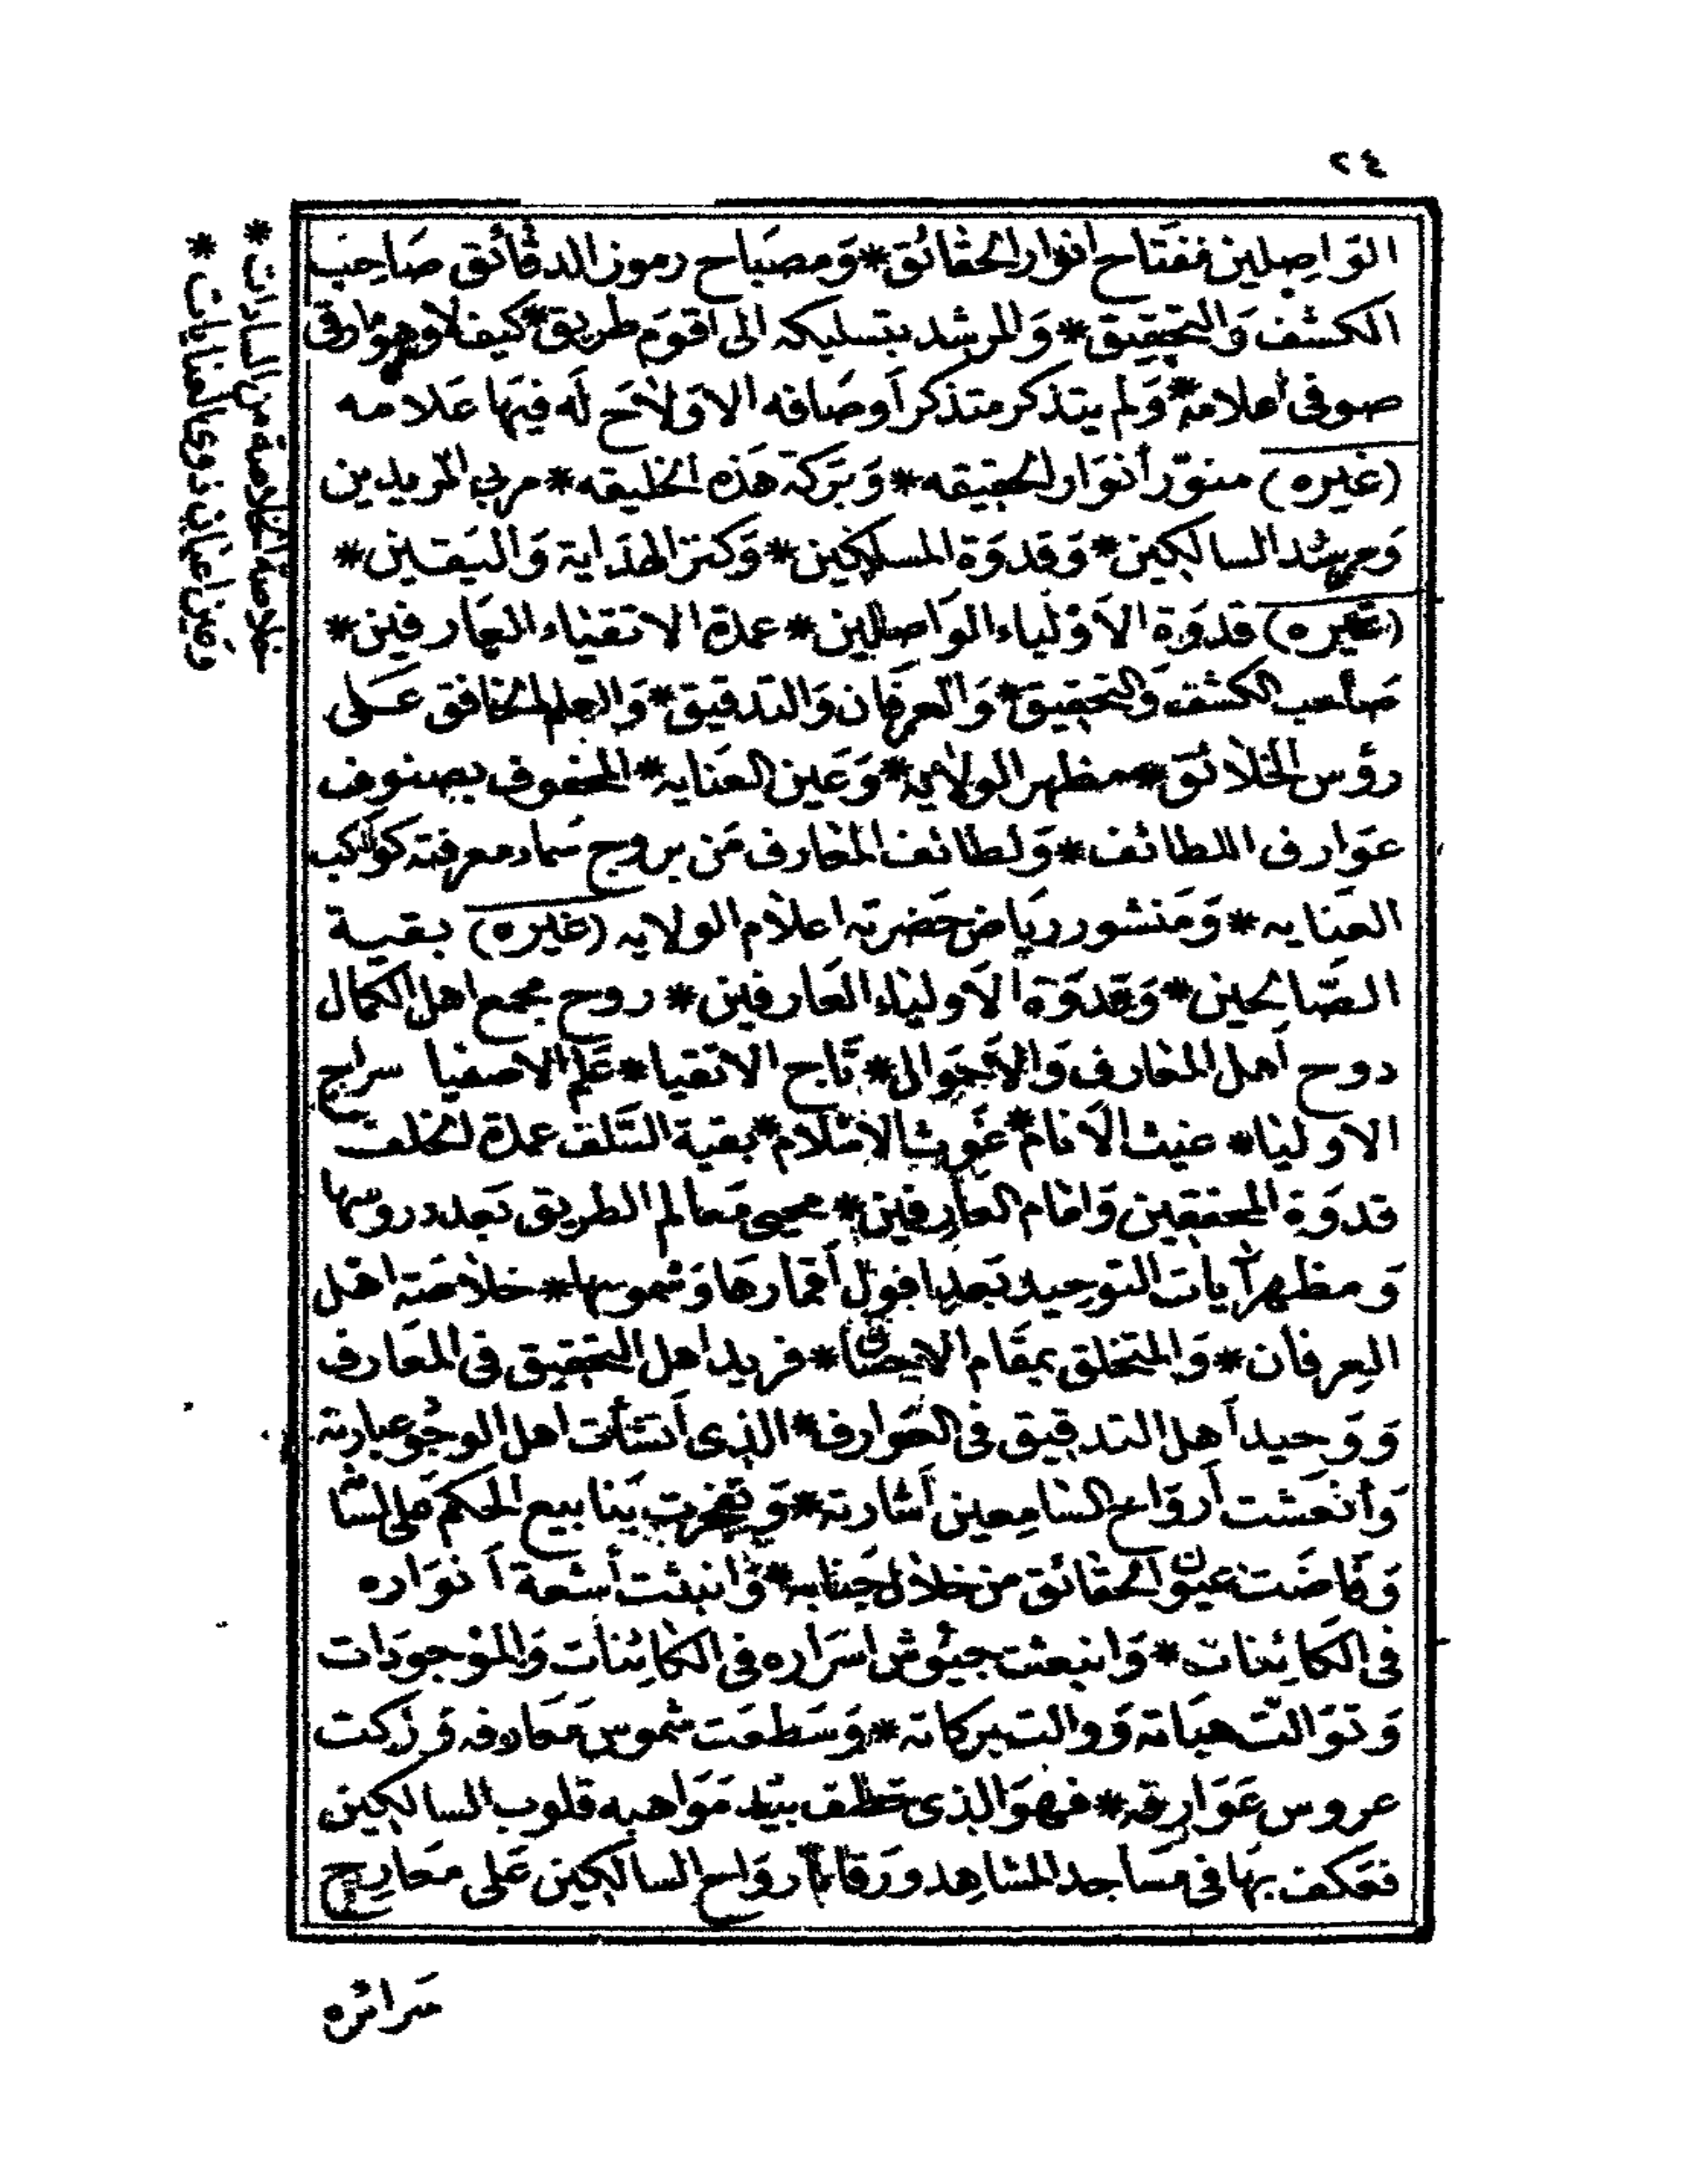 ٢٤
الوَاصِلين مفتَاح انوار الحقائق * وَمصبَاح رموز الدقائق صَاحِب
الكشف وَالتحقيق * وَالمرشد بتسليكه الى اقوَم طريق * كيف لا وهو
صوفى أعلامه * وَلم يتذكر متذكر أوصَافه الا وَلاَح لَه فيهَا عَلامه
(غيره) منوّر أنوَار الحقيقه * وَبَركة هَذه الخليقه * مربى المريدين
وَمرشد السالكين * وَقدوَة المسلكين * وَكنز الهدَاية وَاليَقين *
(غيره) قدوَة الاَوْلياء الوَاصلين * عمدة الاتقياء العارفين *
صَاحب الكشف وَالتحقيق * وَالعرفَان وَالتدقيق * وَالعلم الخافق عَلى
رؤس الخلائق * مظهر الولايه * وَعَين العنايه * المحفوف بصنوف
عوَارف اللطائف * وَلطائف المعَارف مَن بروج سَماء معرفته كواكب
العنَايه * وَمَنشور ريَاض حَضرته اعلام الولايه (غيره) بقية
الصَّالحين * وَقدوَة الاَولياء العَارفين * روح مجمع اهل الكمال
دوح أهل المعَارف وَالاَحوَال * تَاج الاتقيا * عَلم الاصفيا سراج
الاوليا * غيث الاَنام * غوث الاسلام * بقية السَّلف عمدة الخلف
قدوَة المحققين وَامَام العَارفين * محيى مَعالم الطريق بَعد دروسها
وَمظهر آيات التوحيد بَعد افول أقمارهَا وَشموسها * خلاصَة اهل
العِرفان * وَالمتخلق بمقَام الاحسان * فريد اهل التحقيق فى المعَارف
وَوَحيد أهل التدقيق فى العَوارف * الذى أنشأت اهل الوجو عبارته
وَأنعَشت أروَاح السَامِعين أشارته * وَتفجرت يَنابيع الحكم عَلى لسا
وَفَاضَت عيون الحقائق من خلال جَنابه * وَانبثت أشعة أنوَاره
فى الكَائِنات * وَانبعثت جيُوش اسرَاره فى الكَائِنات وَالمَوْجودَات
وَتوَالت هبَاته وَوالت بركاته * وَسَطعَت شموس مَعَارفه وَزكت
عروس عَوَارفه * فهوَ الذى تخطف بيَد مَوَاهبه قلوب السالكين
فعَكف بهَا فى مسَاجد المشاهِد ورَقا بأروَاح السالكين عَلى معَارج
سَرائره
خلاصة الخلاصة من السادات *
وعَين اعيَان ذوى العنايات *